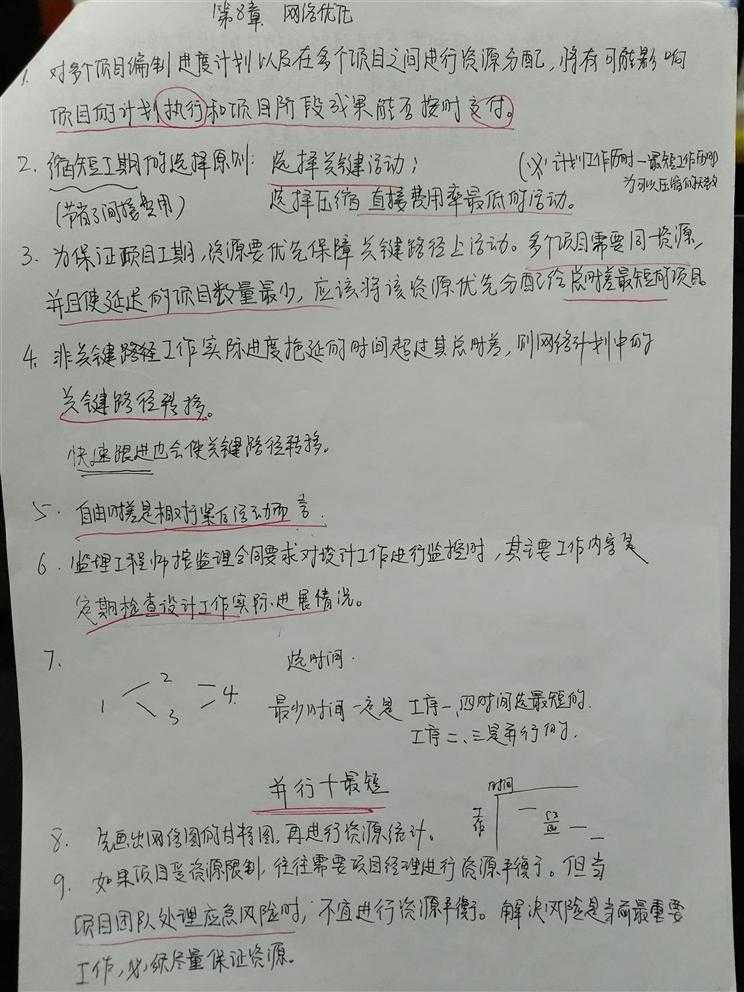 第8章 网络优化
1. 对多个项目编制进度计划以及在多个项目之间进行资源分配，将有可能影响
项目的计划执行和项目阶段成果能否按时交付。
2. 缩短工期的选择原则：选择关键活动；（※：计划工作历时－最短工作历时
为可以压缩的天数）
（节省了间接费用） 选择压缩直接费用率最低的活动。
3. 为保证项目工期，资源要优先保障关键路径上活动。多个项目需要同一资源，
并且使延迟的项目数量最少，应该将该资源优先分配给总时差最短的项目。
4. 非关键路径工作实际进度拖延的时间超过其总时差，则网络计划中的
关键路径转移。
快速跟进也会使关键路径转移。
5. 自由时差是相对于紧后活动而言.
6. 监理工程师按监理合同要求对设计工作进行监控时，其主要工作内容是
定期检查设计工作实际进展情况。
7. 选时间.
2
1 4
3
最少时间一定是 工序一、四时间选最短的.
工序二、三是并行的.
并行+最短
8. 先画出网络图的甘特图，再进行资源统计。
时间
工作
9. 如果项目受资源限制，往往需要项目经理进行资源平衡了。但当
项目团队处理应急风险时，不宜进行资源平衡了。解决风险是当前最重要
工作，必须尽量保证资源。